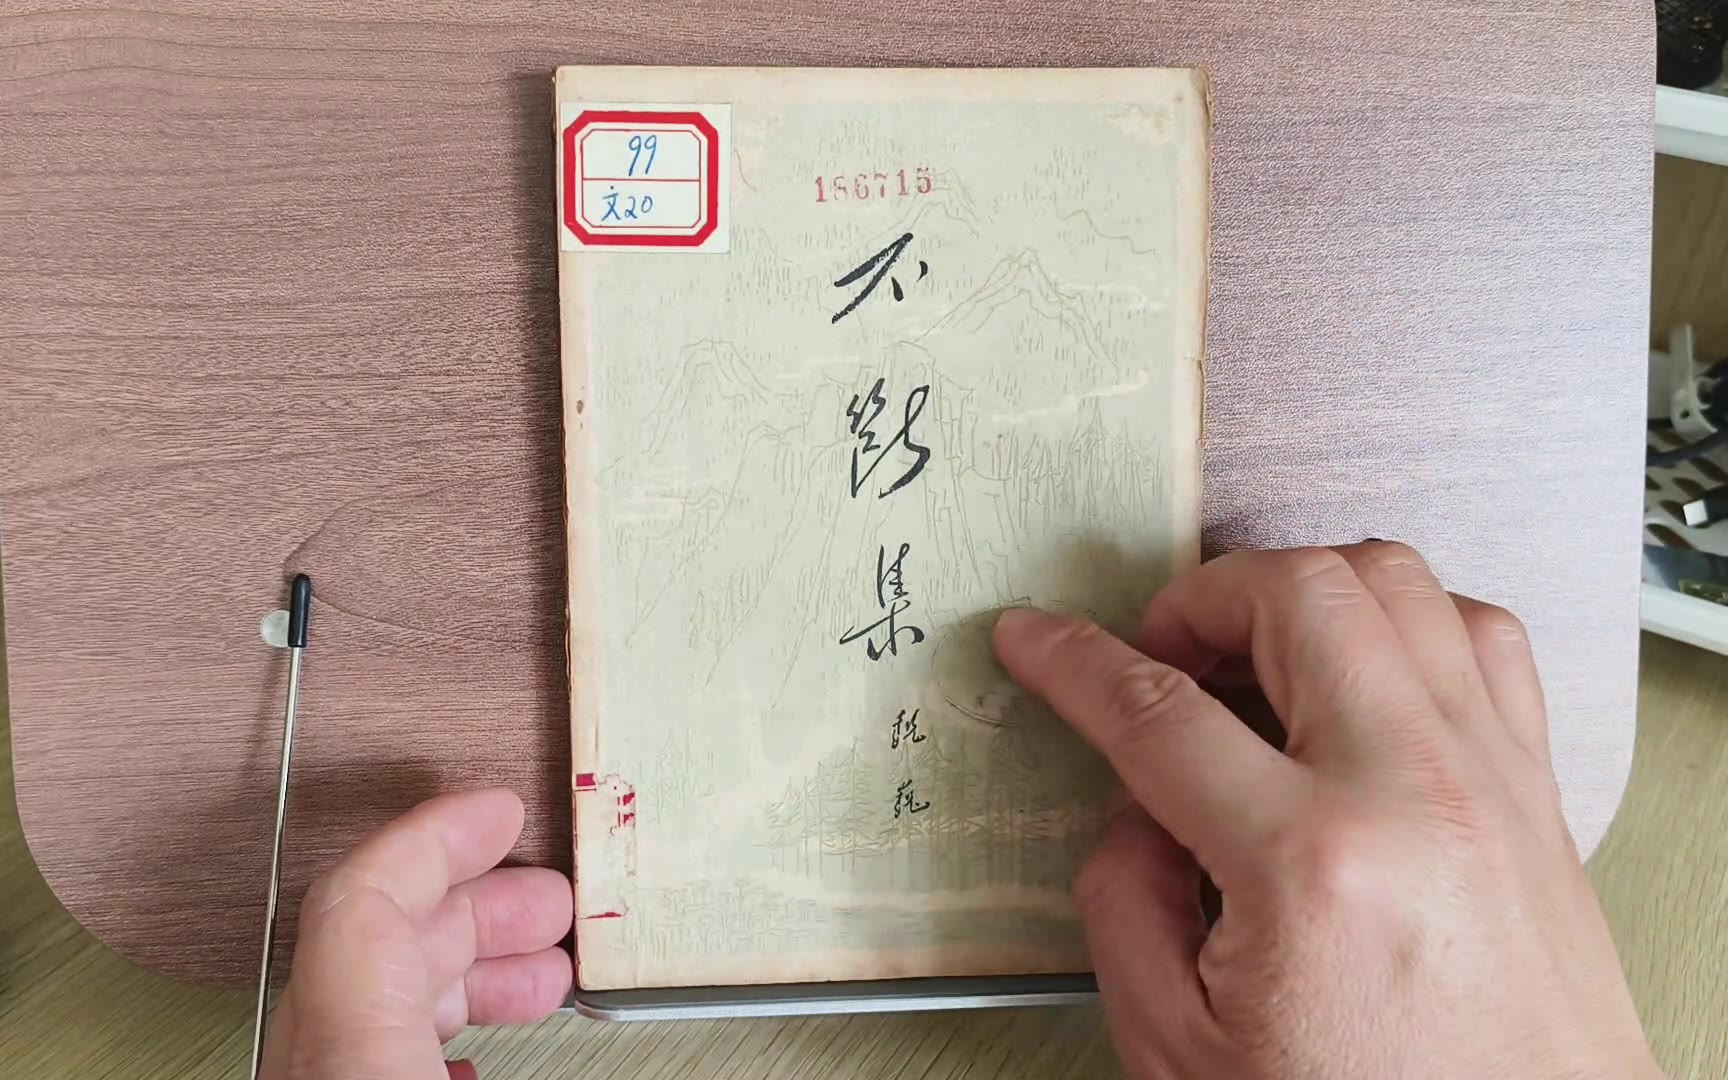 99
文20
186715
不
断
集
魏
巍